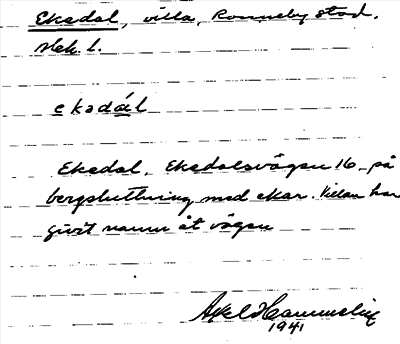 Ekedal, villa, Ronneby stad.
Hek. l.
ekədál
Ekedal, Ekedalsvägen 16 på
bergsluttning med ekar. Villan har
givit namn åt vägen
Axel
1941